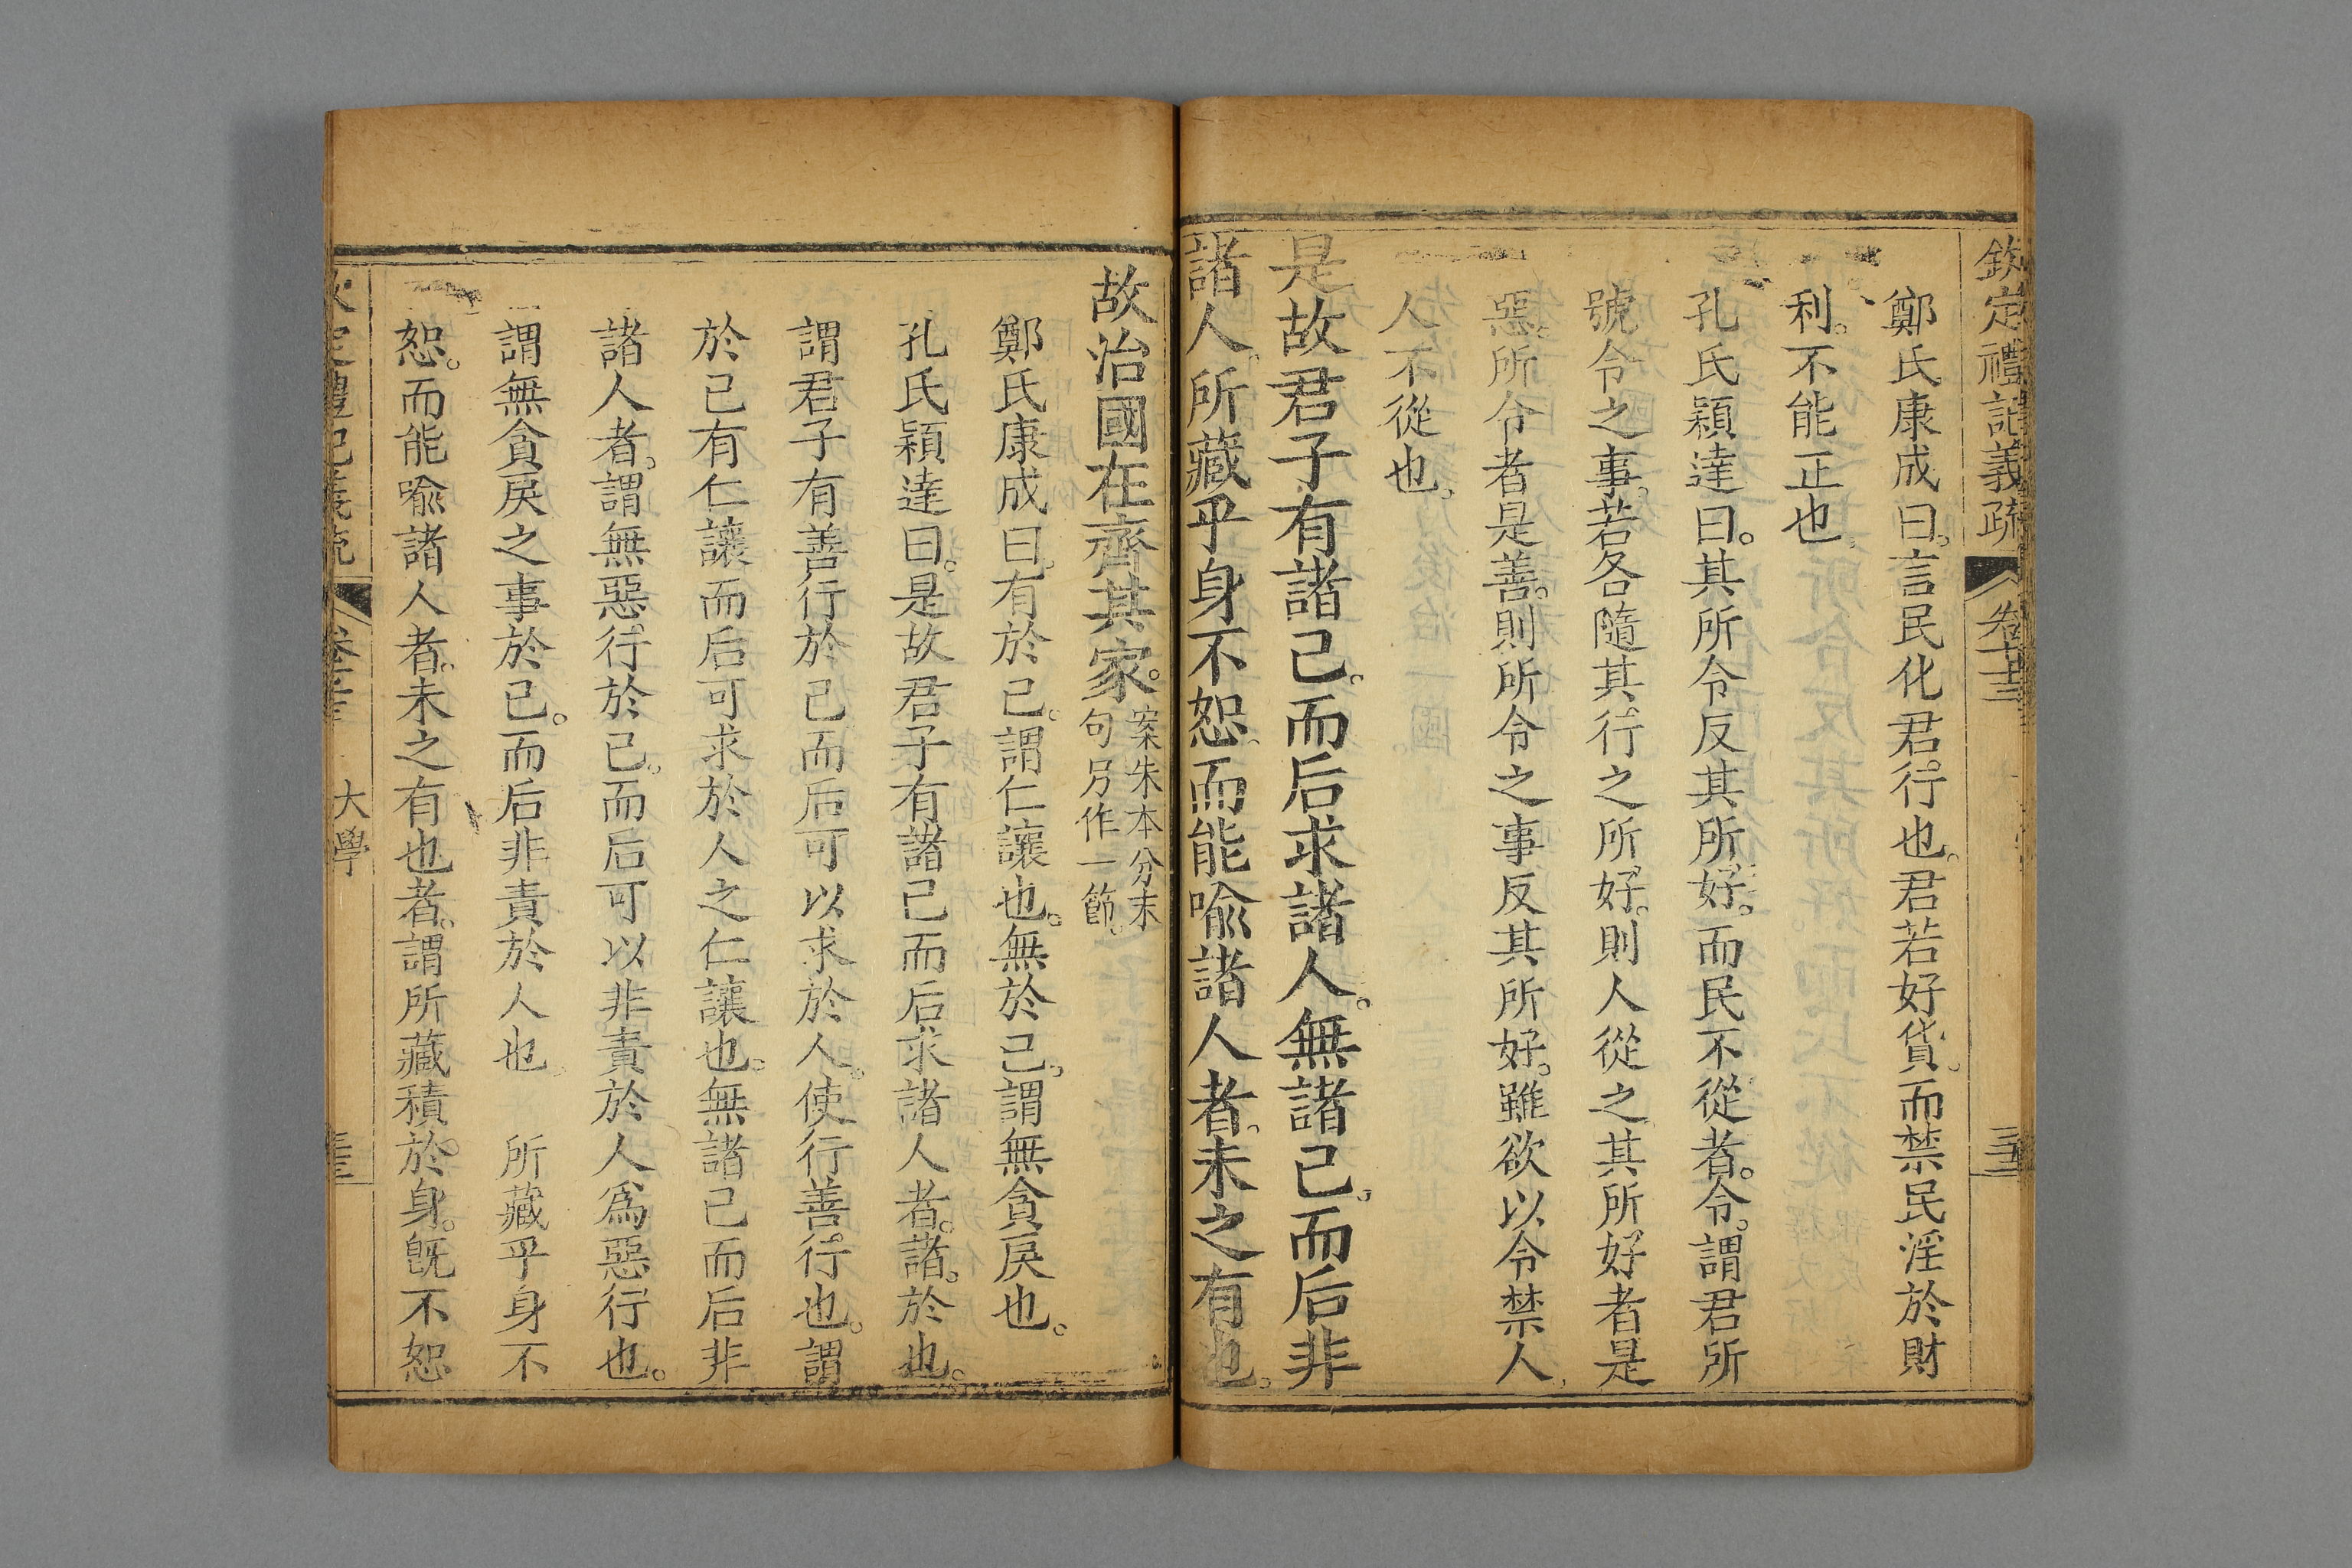 欽定禮記義疏 卷七十三
鄭氏康成曰言民化君行也君若好貨而禁民淫於財
利不能正也
孔氏穎達曰其所令反其所好而民不從者令謂君所
號令之事若各隨其行之所好則人從之其所好者是
惡所令者是善則所令之事反其所好雖欲以令禁人
人不從也
是故君子有諸己而后求諸人無諸己而后非
諸人所藏乎身不恕而能喻諸人者未之有也
故治國在齊其家案朱本分末
句另作一節
鄭氏康成曰有於己謂仁讓也無於己謂無貪戾也
孔氏穎達曰是故君子有諸己而后求諸人者諸於也
謂君子有善行於己而后可以求於人使行善行也謂
於己有仁讓而后可求於人之仁讓也無諸己而后非
諸人者謂無惡行於己而后可以非責於人為惡行也
謂無貪戾之事於己而后非責於人也　所藏乎身不
恕而能喻諸人者未之有也者謂所藏積於身既不恕
大學